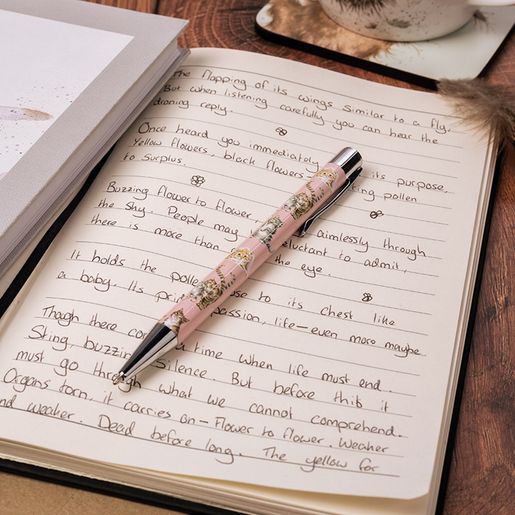 The flapping of its wings similar to a fly.
But when listening carefully you can hear the
droning reply.
Once heard you immediately its purpose,
Yellow flowers, black flowers ting pollen
to surplus.
Buzzing flower to flower, aimlessly through
the sky. People may reluctant to admit,
there is more than the eye.
It holds the pollen close to its chest like
a baby. Its passion, life-even more maybe
Though there time when life must end.
Sting, buzzing silence. But before this it
must go through what we cannot comprehend.
Organs torn, it carries on- Flower to flower. Weaker
and weaker. Dead before long. The yellow for